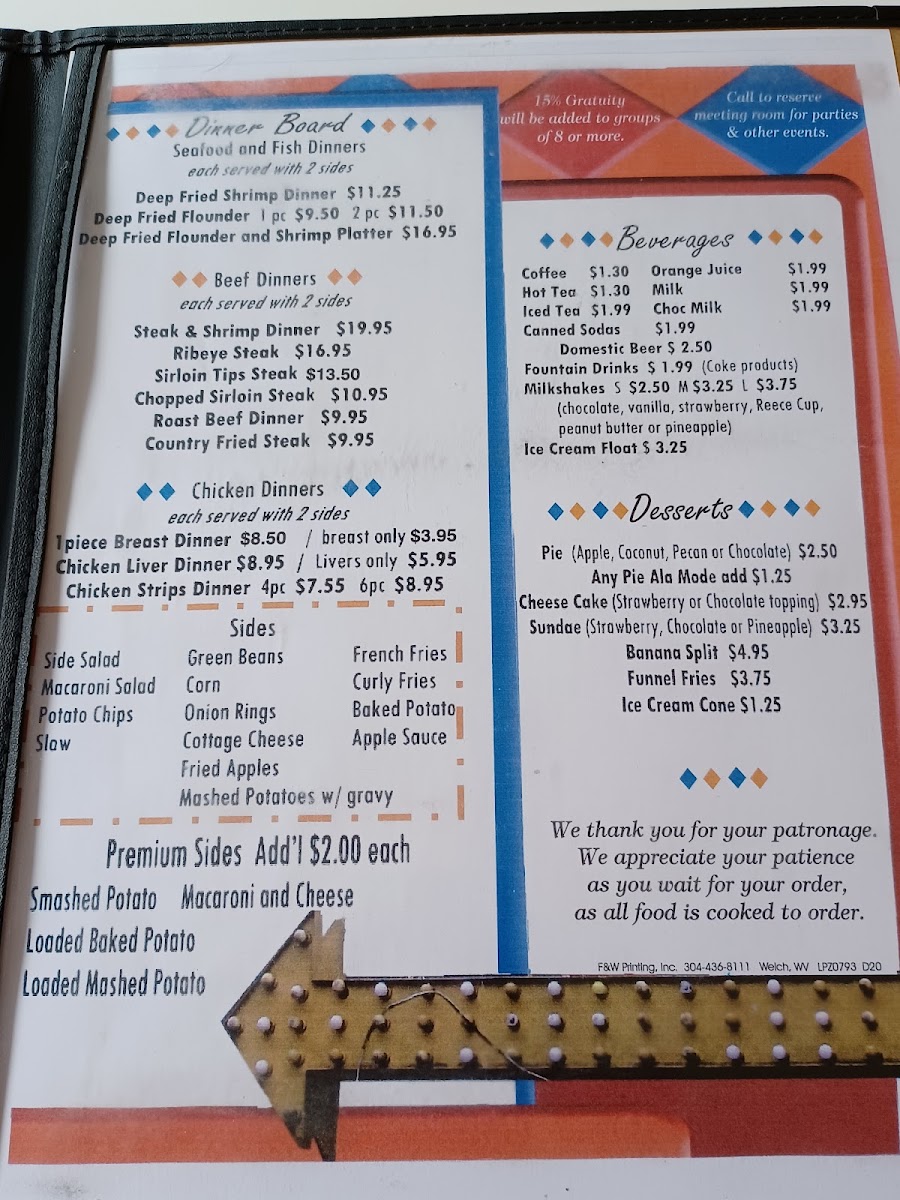 Dinner Board
Seafood and Fish Dinners
each served with 2 sides
Deep Fried Shrimp Dinner $11.25
Deep Fried Flounder 1 pc $9.50 2 pc $11.50
Deep Fried Flounder and Shrimp Platter $16.95
Beef Dinners
each served with 2 sides
Steak & Shrimp Dinner $19.95
Ribeye Steak $16.95
Sirloin Tips Steak $13.50
Chopped Sirloin Steak $10.95
Roast Beef Dinner $9.95
Country Fried Steak $9.95
Chicken Dinners
each served with 2 sides
1piece Breast Dinner $8.50 / breast only $3.95
Chicken Liver Dinner $8.95 / Livers only $5.95
Chicken Strips Dinner 4pc $7.55 6pc $8.95
Sides
Side Salad Green Beans French Fries
Macaroni Salad Corn Curly Fries
Potato Chips Onion Rings Baked Potato
Slaw Cottage Cheese Apple Sauce
Fried Apples
Mashed Potatoes w/ gravy
Premium Sides Add'l $2.00 each
Smashed Potato Macaroni and Cheese
Loaded Baked Potato
Loaded Mashed Potato
15% Gratuity
will be added to groups
of 8 or more.
Call to reserve
meeting room for parties
& other events.
Beverages
Coffee $1.30 Orange Juice $1.99
Hot Tea $1.30 Milk $1.99
Iced Tea $1.99 Choc Milk $1.99
Canned Sodas $1.99
Domestic Beer $ 2.50
Fountain Drinks $ 1.99 (Coke products)
Milkshakes S $2.50 M $3.25 L $3.75
(chocolate, vanilla, strawberry, Reece Cup,
peanut butter or pineapple)
Ice Cream Float $ 3.25
Desserts
Pie (Apple, Coconut, Pecan or Chocolate) $2.50
Any Pie Ala Mode add $1.25
Cheese Cake (Strawberry or Chocolate topping) $2.95
Sundae (Strawberry, Chocolate or Pineapple) $3.25
Banana Split $4.95
Funnel Fries $3.75
Ice Cream Cone $1.25
We thank you for your patronage.
We appreciate your patience
as you wait for your order,
as all food is cooked to order.
F&W Printing, Inc. 304-436-8111 Welch, WV LPZ0793 D20